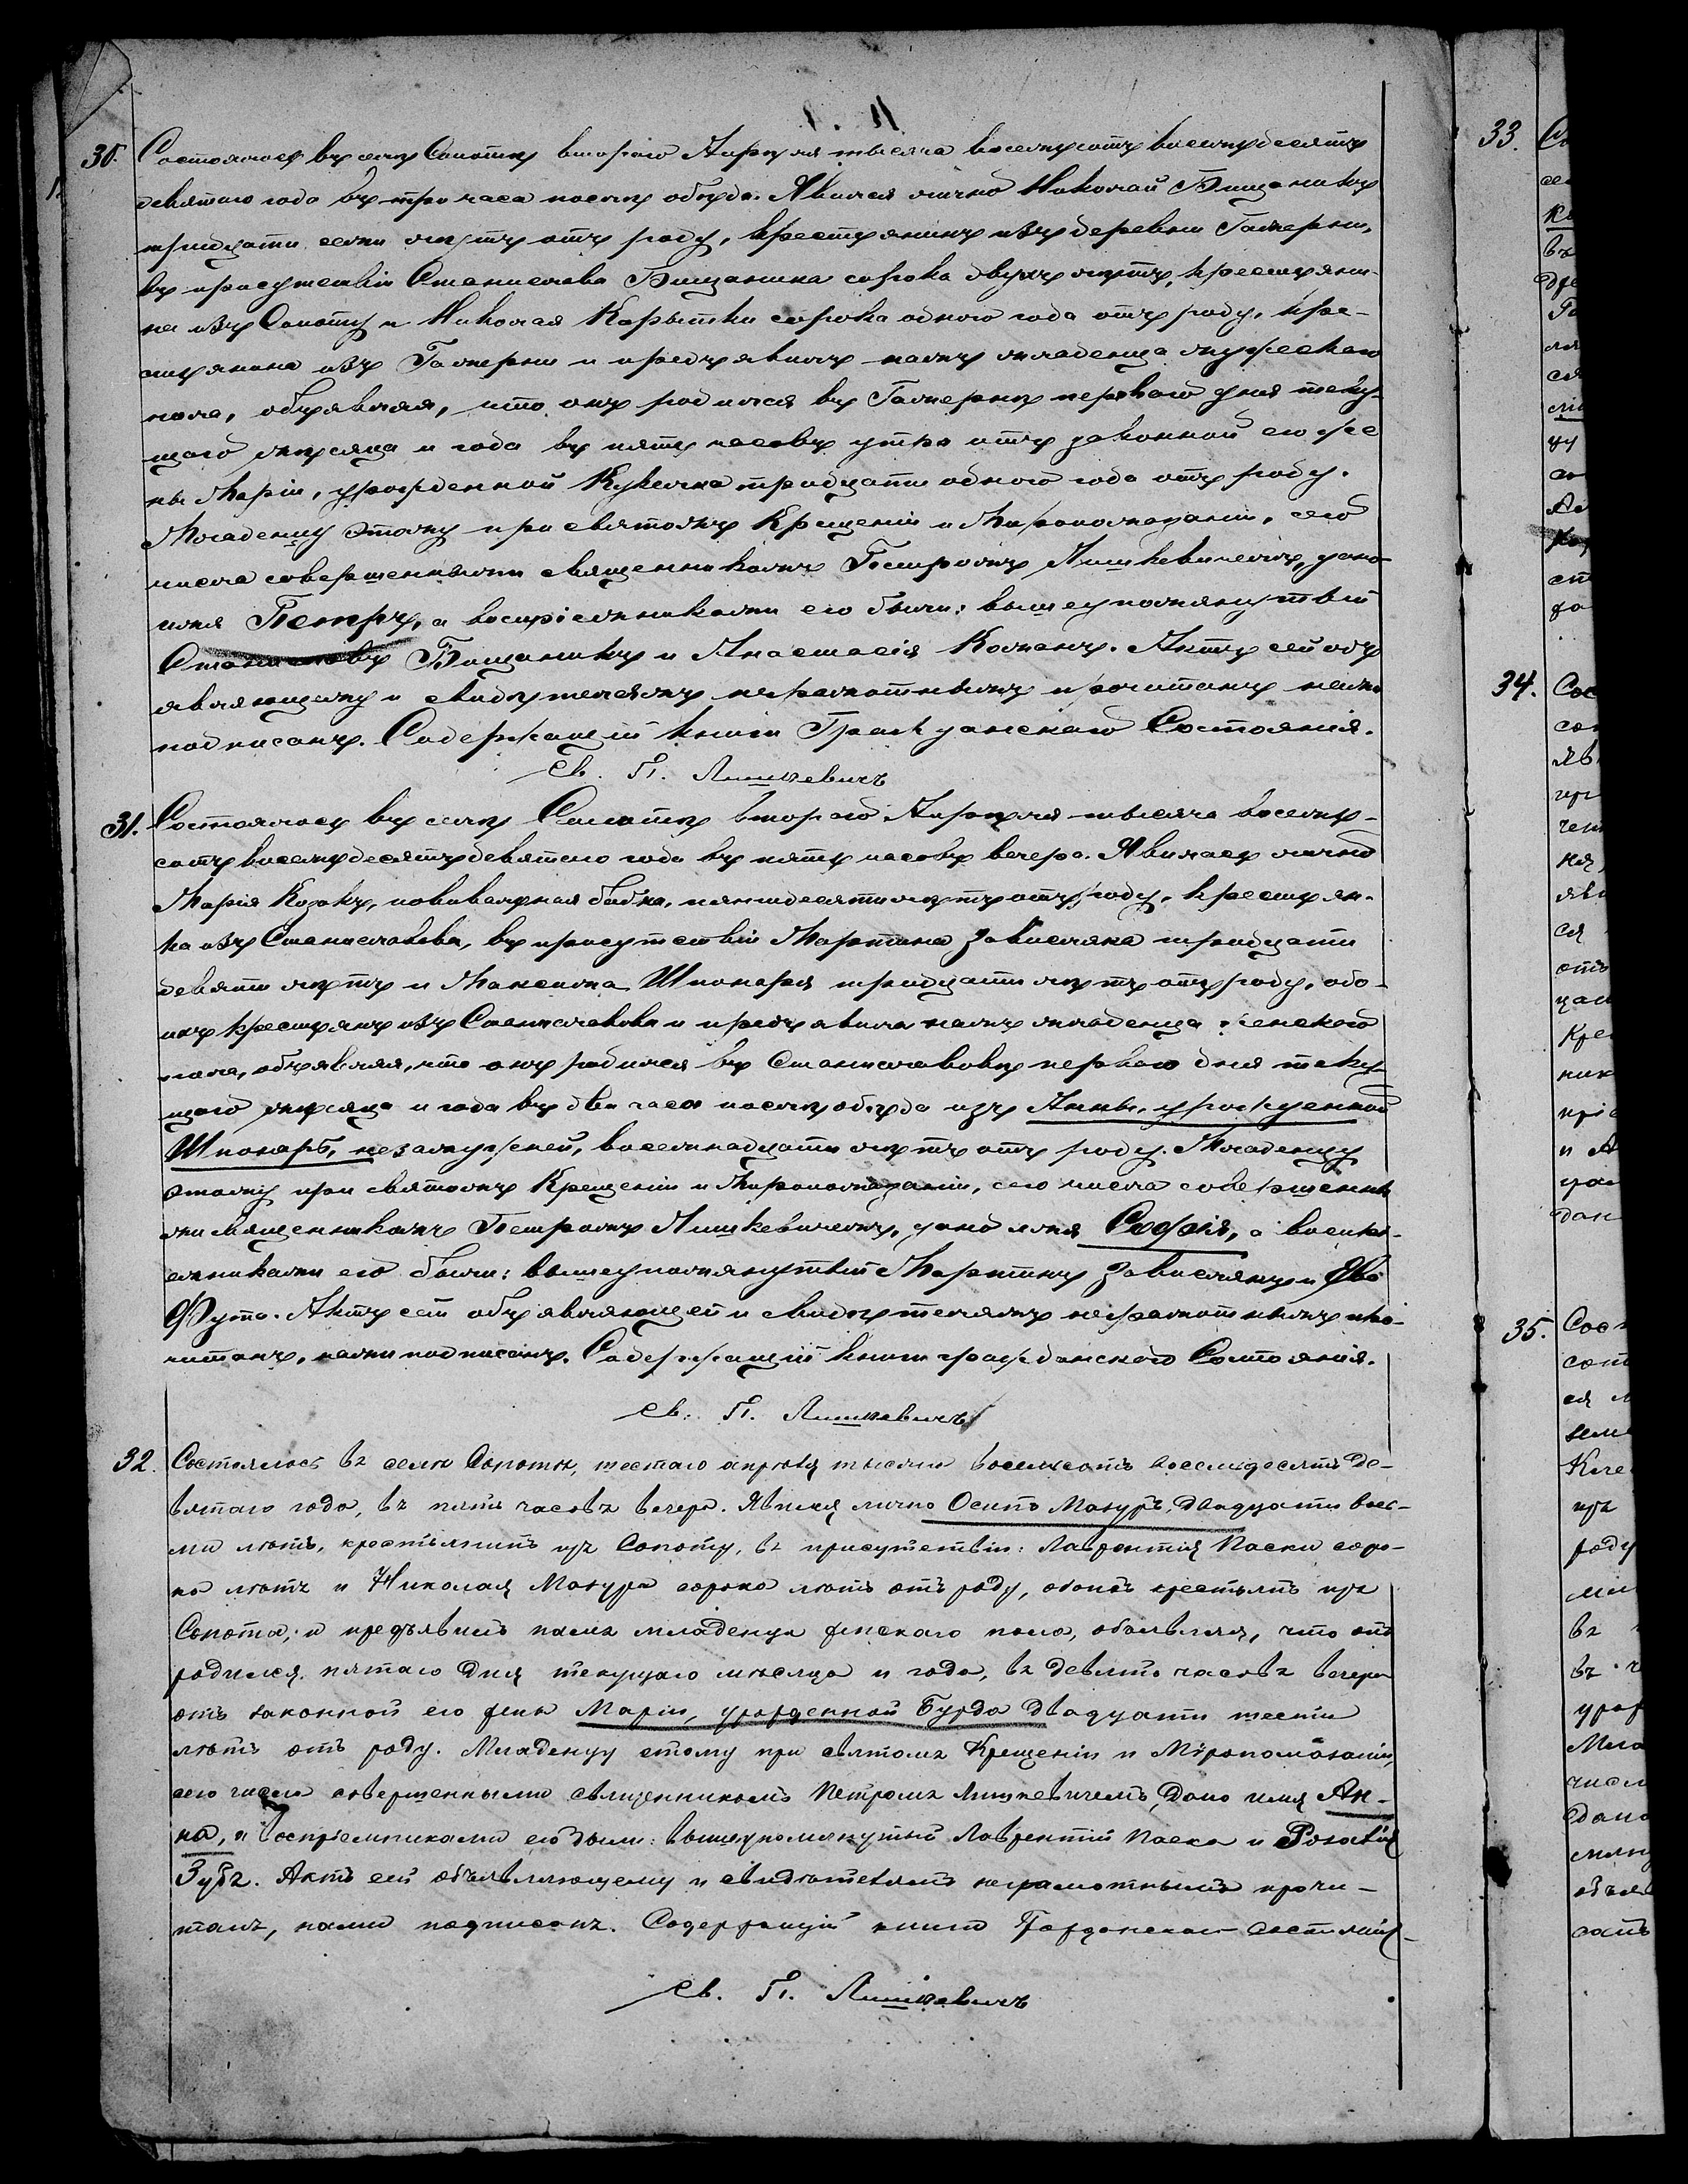 30. Состоялось въ селѣ Сопотѣ второго Апрѣля тысяча восемьсотъ восемьдесятъ
девятаго года въ три часа послѣ обѣда. Явился лично Николай Бищаникъ
тридцати семи лѣтъ отъ роду, крестьянинъ изъ деревни Гамерни,
въ присутствіи Станислава Бищаника сорока двухъ лѣтъ, крестьяни-
на изъ Сопоту и Николая Карышки сорока одного года отъ роду, кре-
стьянина изъ Гамерни и предъявилъ намъ младенца мужескаго
пола, объявляя, что онъ родился въ Гамернѣ перваго дня теку-
щаго мѣсяца и года въ пять часовъ утра отъ законной его же
ны Маріи, урожденной тридцати одного года отъ роду.
Младенцу этому при святомъ Крещеніи и Мѵропомазаніи, сего
числа совершенными священникомъ Петромъ Лишкевичемъ, дано
имя Петръ, а воспріемниками его были: вышеупомянутый
Станиславъ Бищаникъ и Анастасія Колманъ. Актъ сей объ
являющему и свидѣтелямъ неграмотнымъ прочитанъ нами
подписанъ. Содержащій книги Гражданскаго Состоянія.
Св. П. Лишкевичъ
31. Состоялось въ селѣ Сопотѣ второго Апрѣля тысяча восемь-
сотъ восемьдесятъ девятаго года въ пять часовъ вечера. Явилась лично
Марія Козакъ, повивальная бабка, пятидесяти лѣтъ отъ роду, крестьян-
ка изъ Станиславова, въ присутствіи Мартина Зависляка тридцати
девяти лѣтъ и Максима Шпонаря тридцати лѣтъ отъ роду, обо-
ихъ крестьянъ изъ Станиславова и предъявила намъ младенца женского
пола, объявляя, что онъ родился въ Станиславовѣ перваго дня теку-
щаго мѣсяца и года въ два часа послѣ обѣда изъ Анны, урожденной
Шпонаръ, незамужней, восемнадцати лѣтъ отъ роду. Младенцу
этому при святомъ Крещеніи и Мѵропомазаніи, сего числа совершенны
ми священникомъ Петромъ Лишкевичемъ, дано имя Софія, а воспрі-
емниками его были: вышеупомянутый Мартинъ Завислякъ и Ева
Фута. Актъ сей объявляющей и свидѣтелямъ неграмотнымъ про-
читанъ, нами подписанъ. Содержащій книги гражданского Состоянія.
Св. П. Лишкевичъ
32. Состоялось въ селѣ Сопотѣ, шестаго апрѣля тысяча восемьсотъ восемьдесятъ де-
вятаго года, въ пять часовъ вечера. Явился лично Осипъ Мазуръ, двадцати вось-
ми лѣтъ, крестьянинъ изъ Сопоту, въ присутствіи: Лаврентія Паски соро-
ка лѣтъ и Николая Мазура сорока лѣтъ отъ роду, обоихъ крестьянъ изъ
Сопота; и предъявилъ намъ младенца женскаго пола, объявляя, что онъ
родился пятаго дня текущаго мѣсяца и года, въ девять часовъ вечера
отъ законной его жены Маріи, урожденной Бурда двадцати шести
лѣтъ отъ роду. Младенцу етому при святомъ Крещеніи и Мѵропомазаніи,
сего числа совершенными священникомъ Петромъ Лишкевичемъ, дано имя Ан-
на, а воспріемниками его были: вышеупомянутый Лаврентій Паска и Розалія
Зубъ. Актъ сей объявляющему и свидѣтелямъ неграмотнымъ прочи-
танъ, нами подписанъ. Содержащій книги Гражданскаго Состоянія
Св. П. Лишкевичъ
33.
34.
35.